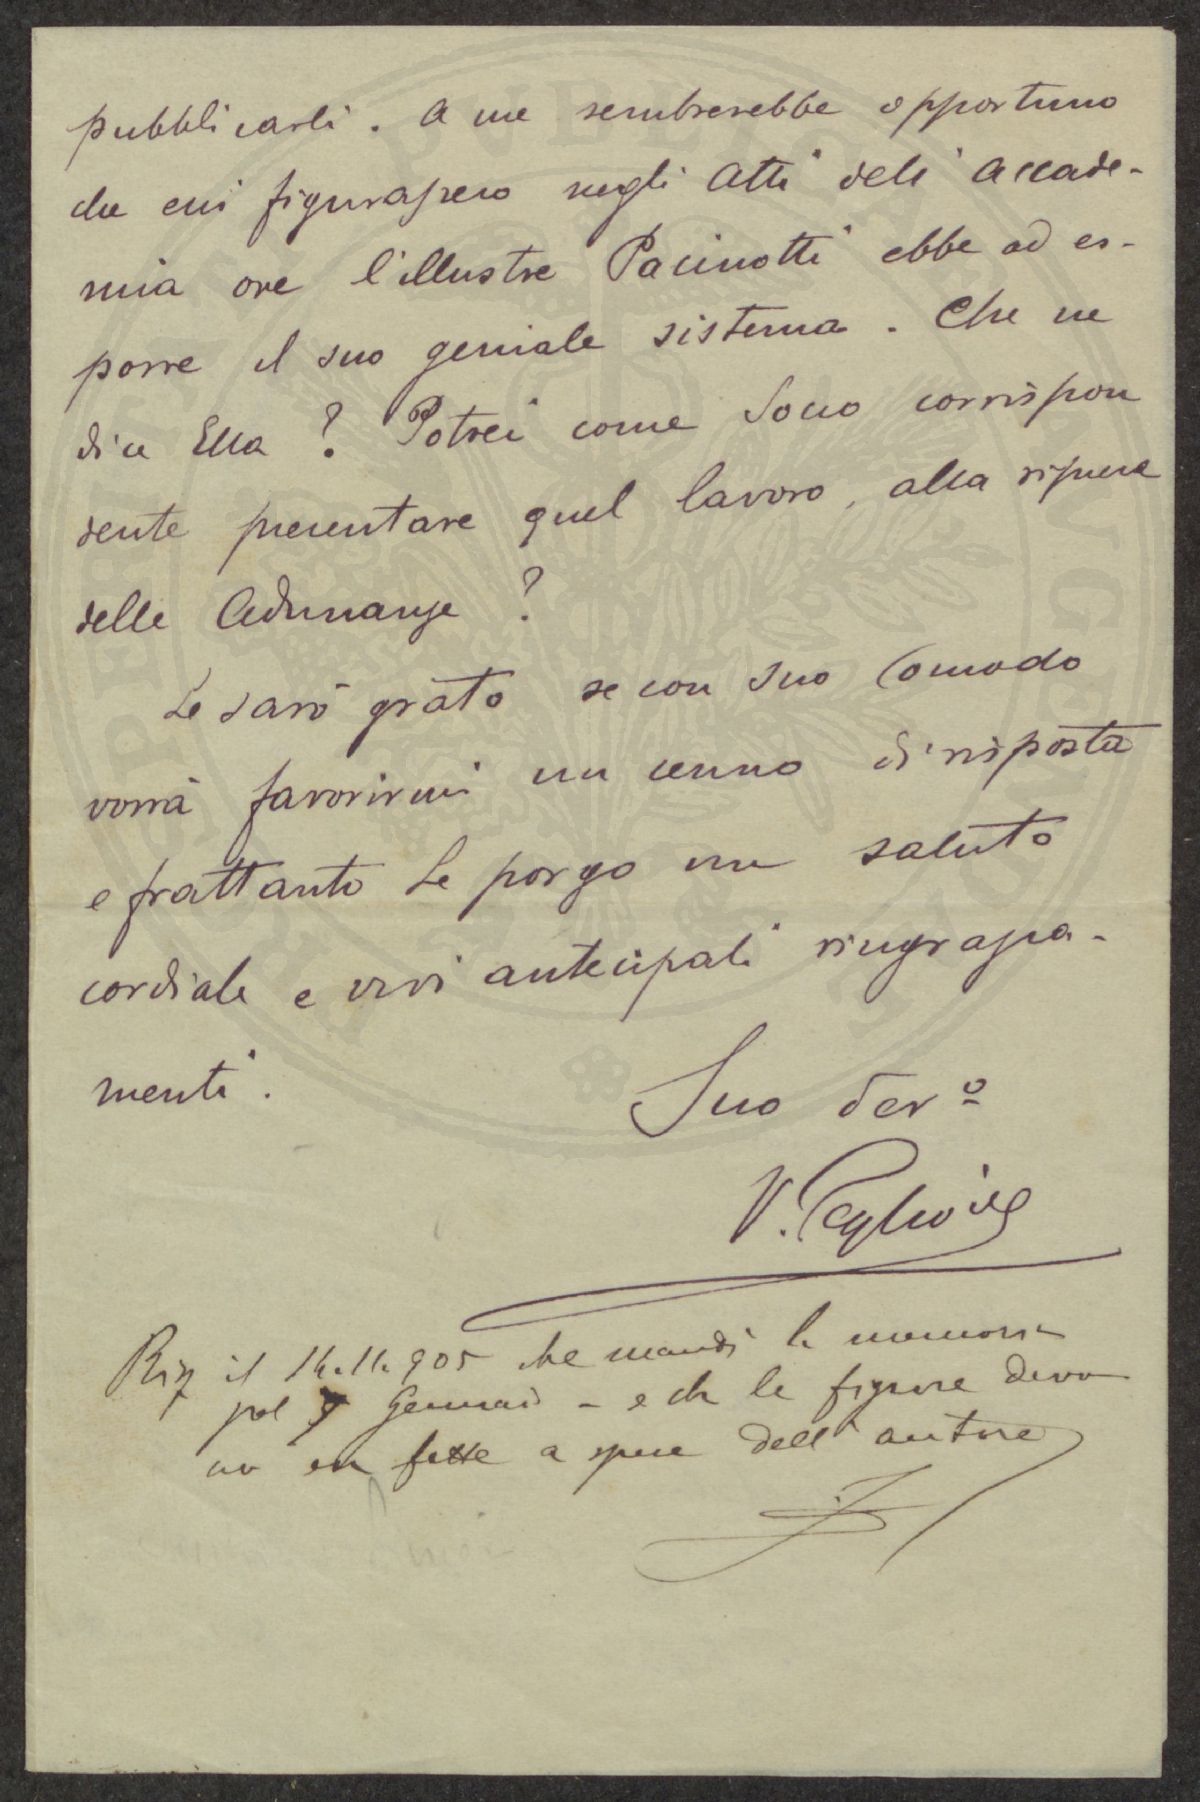 pubblicarli. A me sembrerebbe opportuno
che essi figurassero negli Atti dell'Accade-
mia ove l'illustre Pacinotti ebbe ad es-
porre il suo geniale sistema. Che ne
dice Ella? Potrei come Socio corrispon
dente presentare quel lavoro, alla ripresa
delle Adunanze?
Le sarò grato se con suo comodo
vorrà favorirmi un cenno di risposta
e frattanto Le porgo un saluto
cordiale e vivi antecipati ringrazia-
menti.
Suo dev.º
V. Peglion
il 14.11.905 che mandi la memoria
pel Gennaio - e che le figure devo
no esser fatte a spese dell'autore